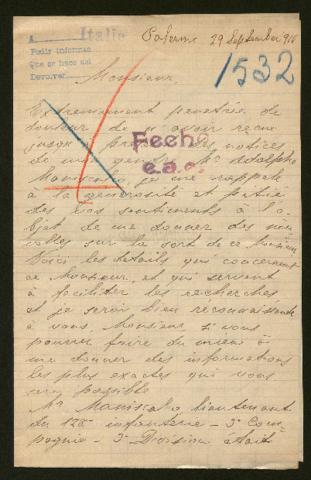 A Italia
Pedir informes
Que se hace así
Devolver
Palerme 29 September 915
1532
Monsieur
Extremement penetrée de
douleur de n' avoir reçue
jusqu'à présent des notices
de mon gendre, Mr. Adolphe
Maniscalco, je me rappele
à la génerosité et pitiée
des vos sentiments à l'o
bjet de me donner des nou
velles sur la sort de ce Monsieur
Voici les détails qui concernent
ce Monsieur, et qui servent
à faciliter les recherches
et je serai bien reconnaissante
à vous, Monsieur, si vous
pourrez faire du mieux à
me donner des informations
les plus exactes qui vous
sera possible
Mr. Maniscalco, lieutenant
du 125 infanterie - 3e Com-
pagnie - 3e Division était
Fecho
e.a.c.